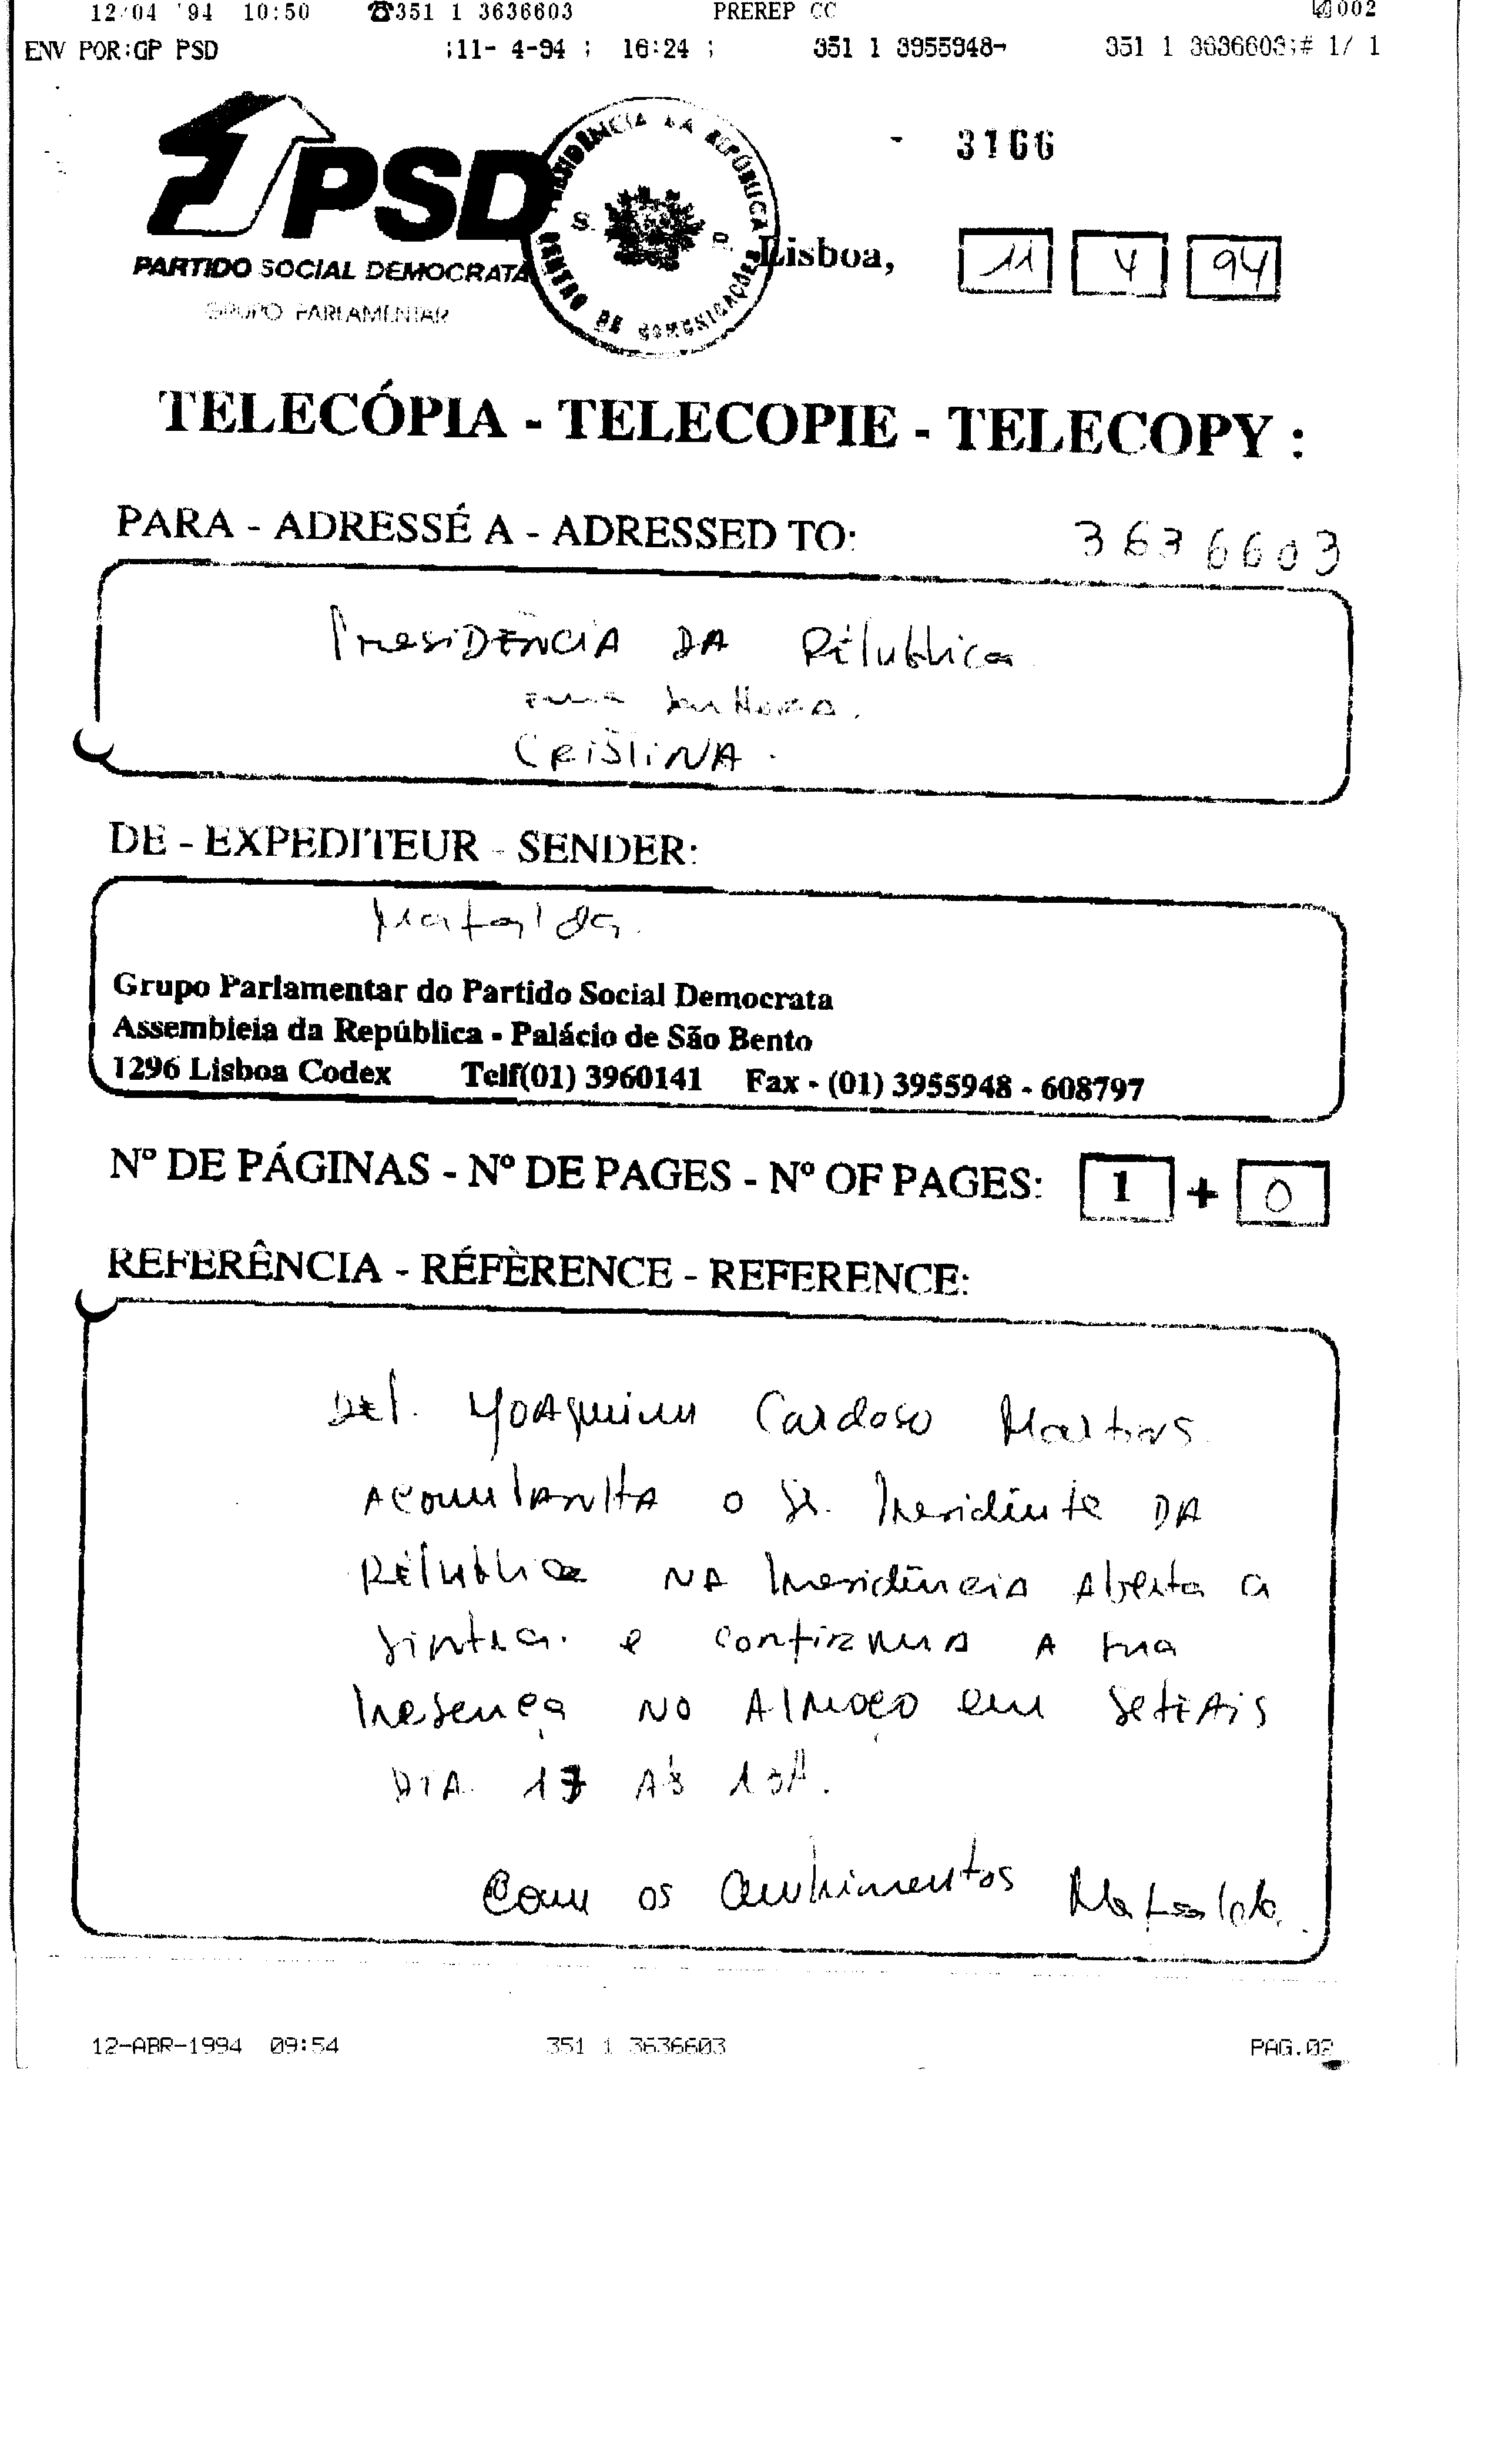 12/04 '94 10:50 ☎351 1 3636603 PREREP CC 002
ENV POR:GP PSD ;11- 4-94 ; 16:24 ; 351 1 3955948→ 351 1 3636603;# 1/ 1
PSD
PARTIDO SOCIAL DEMOCRATA
GRUPO PARLAMENTAR
PRESIDÊNCIA DA REPÚBLICA
S. D.
CENTRO DE COMUNICAÇÕES
- 3166
Lisboa, 11 4 94
TELECÓPIA - TELECOPIE - TELECOPY :
PARA - ADRESSÉ A - ADRESSED TO: 3636603
PresiDÊNCiA DA República
CRiSTiNA.
DE - EXPEDITEUR - SENDER:
Mafalda.
Grupo Parlamentar do Partido Social Democrata
Assembleia da República - Palácio de São Bento
1296 Lisboa Codex Telf(01) 3960141 Fax - (01) 3955948 - 608797
Nº DE PÁGINAS - Nº DE PAGES - Nº OF PAGES: 1 + 0
REFERÊNCIA - RÉFÈRENCE - REFERENCE:
Joaquim Cardoso Martins
Acompanha o Sr. Presidente DA
República NA Presidência Aberta a
Sintra. e confirma A sua
Presença NO Almoço em SeteAis
DIA 17 ÀS 13H.
Com os Cumprimentos Mafalda.
12-ABR-1994 09:54 351 1 3636603 PAG.02